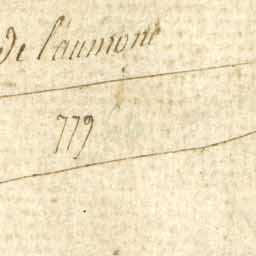 de l'aumone
779